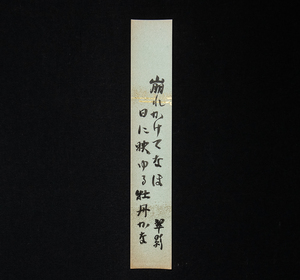 崩れかけてなほ
日に映ゆる牡丹かな
翠影